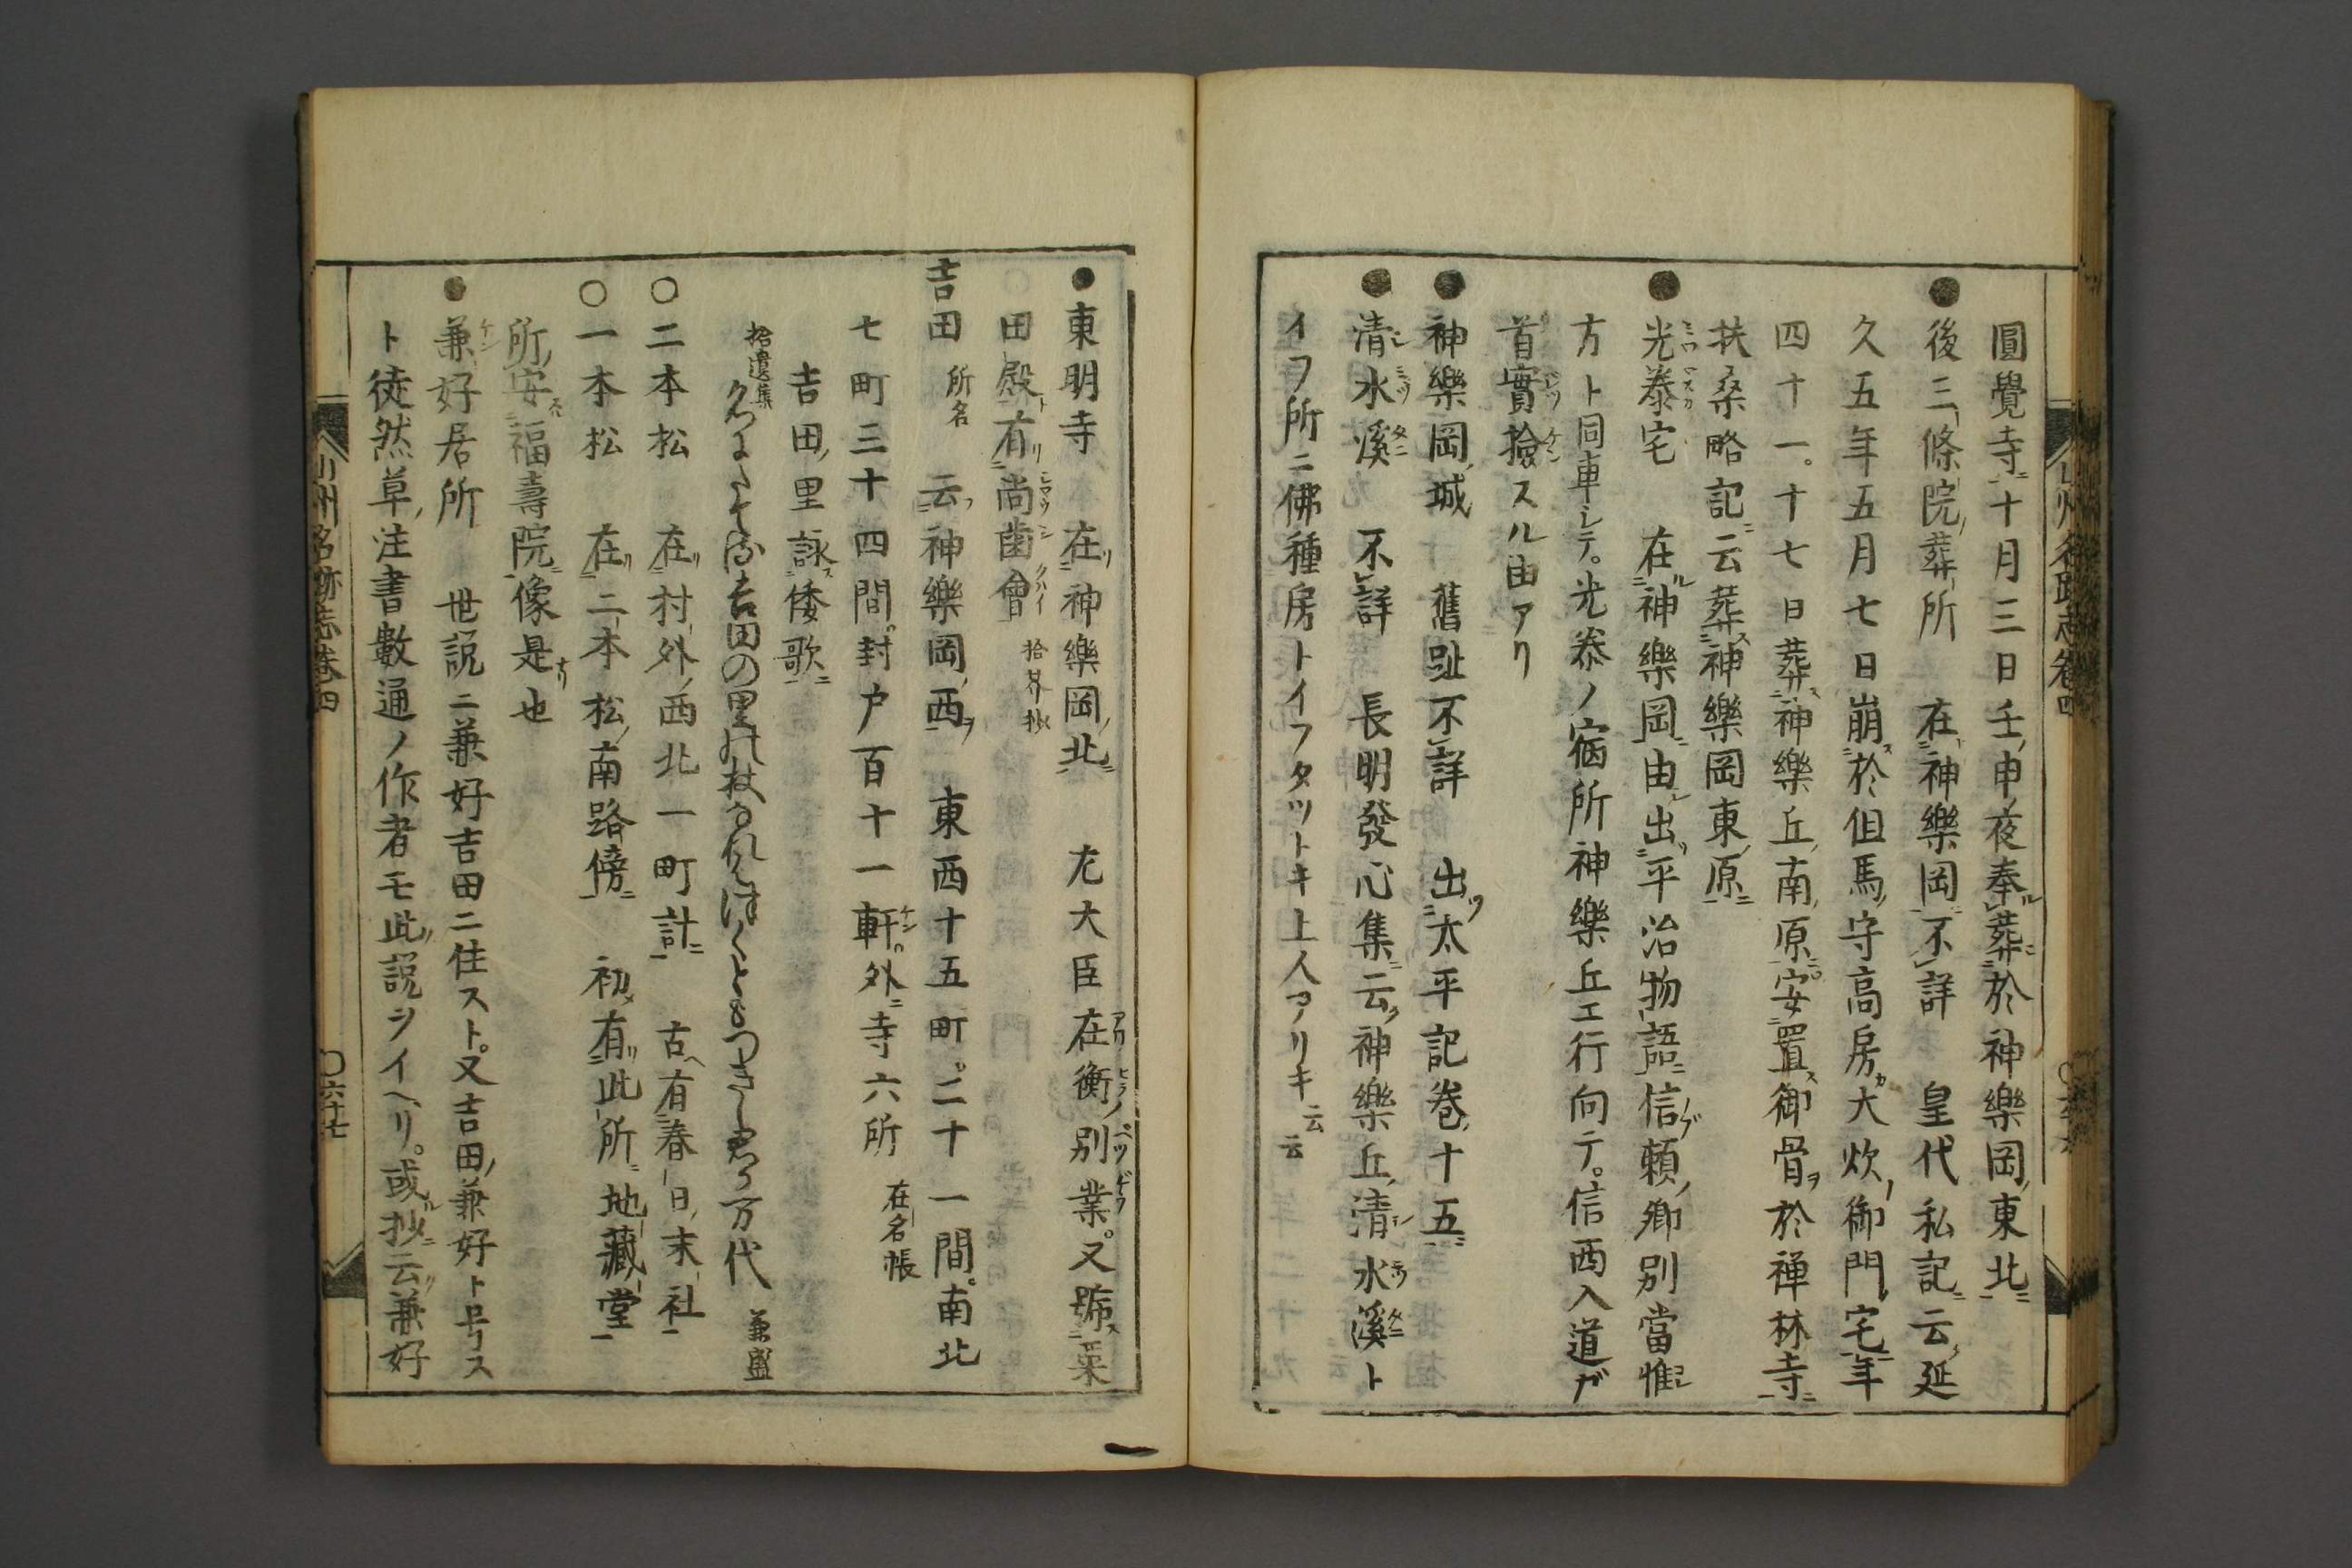 圓覺寺ニ十月三日壬申夜奉葬於神樂岡ノ東北ニ
●後三條院ノ葬所　在神樂岡不詳　皇代私記ニ云延
久五年五月七日崩於但馬ノ守高房カ大炊ノ御門ノ宅年
四十一。十七日葬神樂丘ノ南ノ原ニ。安置御骨ヲ於禅林寺ニ
扶桑略記ニ云葬神樂岡東ノ原ニ
●光泰宅　在神樂岡由出平治物語ニ信頼ノ卿別當惟
方ト同車シテ。光泰ノ宿所神樂丘エ行向テ。信西入道ガ
首實撿スル由アリ
●神樂岡ノ城　舊趾不詳　出太平記巻ノ十五ニ
●清水溪　不詳　長明發心集ニ云神樂丘ノ清水溪ト
イフ所ニ佛種房トイフタツトキ上人アリキ云云
●東明寺　在神樂岡ノ北　左大臣在衡ノ別業。又號粟
田殿有尚齒會　拾芥抄
吉田　所名　云神樂岡ノ西ヲ　東西十五町。二十一間。南北
七町三十四間。封戸百十一軒。外ニ寺六所　在名帳
吉田ノ里詠倭歌ニ
拾遺集　名によつて吉田の里の杖なれはつくともつきし君か万代　兼盛
○二本松　在村ノ外西北一町計ニ　古ヘ有春日ノ末社
○一本松　在二本松ノ南路傍ニ　初メ有此所ニ地藏堂
所ノ安福壽院ニ像是也
●兼好居所　世説ニ兼好吉田ニ住スト。又吉田ノ兼好ト号ス
ト徒然草ノ注書數通ノ作者モ此ノ説ヲイヘリ。或抄ニ云兼好
山州名跡志巻四
山州名跡志巻四
○六十七